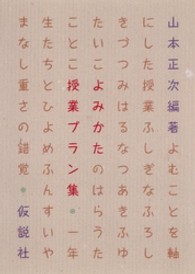 山本正次編著よむことを軸
にした授業ふしぎなふろし
きづつみはるなつあきふゆ
たいこよみかたのはらうた
ことこ授業プラン集●一年
生たちとひよめふんすいや
まなし重さの錯覚●仮説社